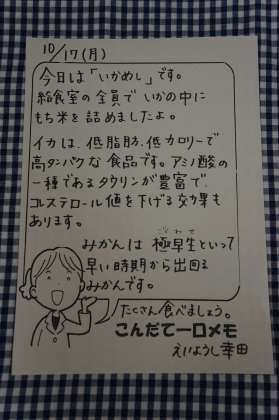 10/17(月)
今日は「いかめし」です。
給食室の全員で いかの中に
もち米を詰めましたよ。
イカは、低脂肪、低カロリーで
高タンパクな食品です。アミノ酸の
一種であるタウリンが豊富で、
コレステロール値を下げる効果も
あります。
ごくわせ
みかんは 極早生といって
早い時期から出回る
みかんです。
たくさん食べましょう。
こんだて一口メモ
えいようし 幸田